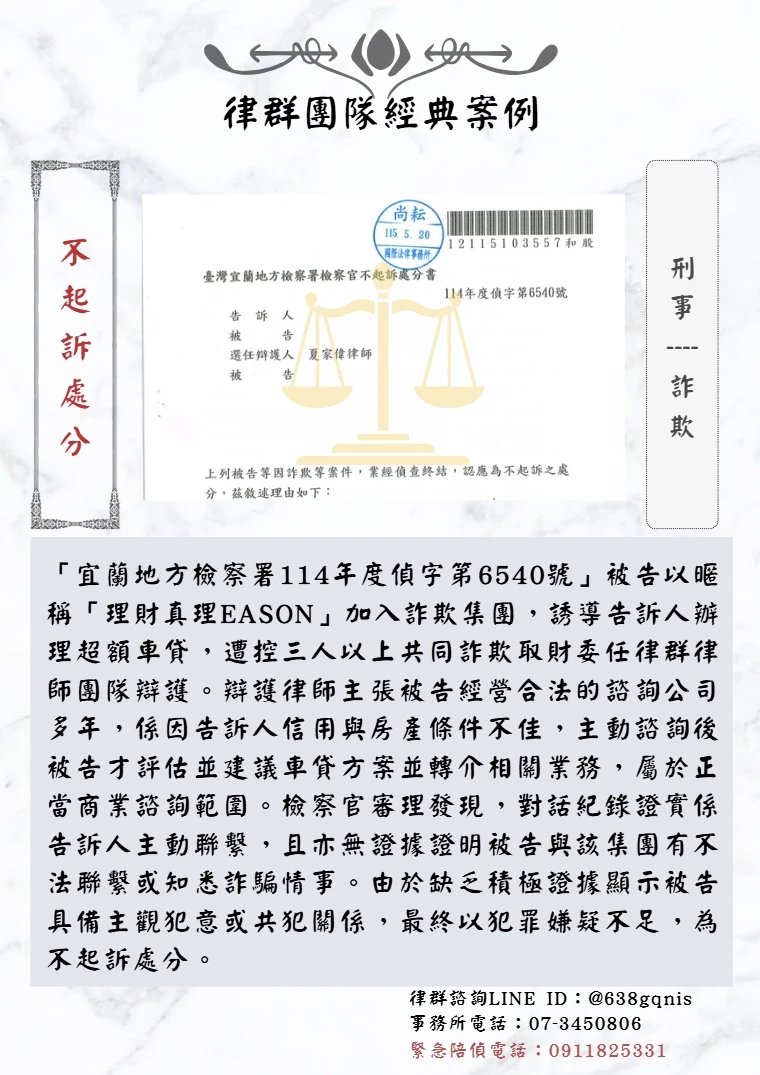 律群團隊經典案例
不起訴處分
刑事----詐欺
尚耘
115.5.20
國際法律事務所
12115103557和股
臺灣宜蘭地方檢察署檢察官不起訴處分書
114年度偵字第6540號
告訴人
被告
選任辯護人 夏家偉律師
被告
上列被告等因詐欺等案件,業經偵查終結,認應為不起訴之處
分,茲敘述理由如下:
「宜蘭地方檢察署114年度偵字第6540號」被告以暱
稱「理財真理EASON」加入詐欺集團,誘導告訴人辦
理超額車貸,遭控三人以上共同詐欺取財委任律群律
師團隊辯護。辯護律師主張被告經營合法的諮詢公司
多年,係因告訴人信用與房產條件不佳,主動諮詢後
被告才評估並建議車貸方案並轉介相關業務,屬於正
當商業諮詢範圍。檢察官審理發現,對話紀錄證實係
告訴人主動聯繫,且亦無證據證明被告與該集團有不
法聯繫或知悉詐騙情事。由於缺乏積極證據顯示被告
具備主觀犯意或共犯關係,最終以犯罪嫌疑不足,為
不起訴處分。
律群諮詢LINE ID:@638gqnis
事務所電話:07-3450806
緊急陪偵電話:0911825331